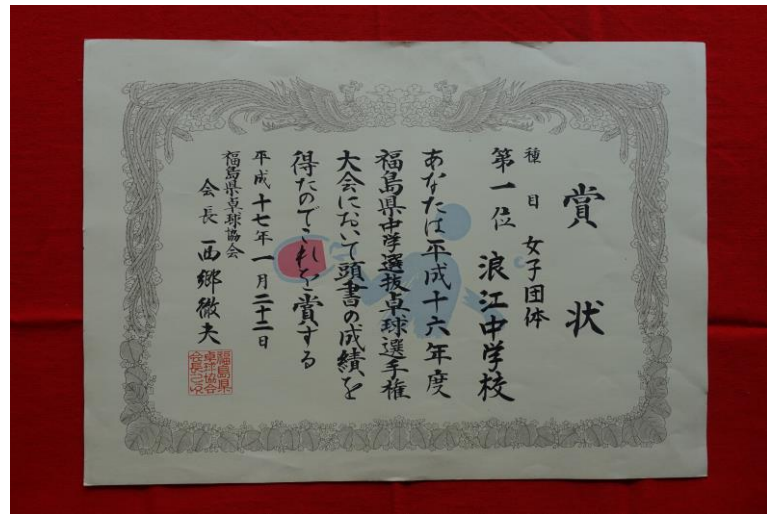 賞状
種目 女子団体
第一位 浪江中学校
あなたは平成十六年度
福島県中学選抜卓球選手権
大会において頭書の成績を
得たのでこれを賞する
平成十七年一月二十二日
福島県卓球協会
会長 西郷徹夫
福島県
卓球協会